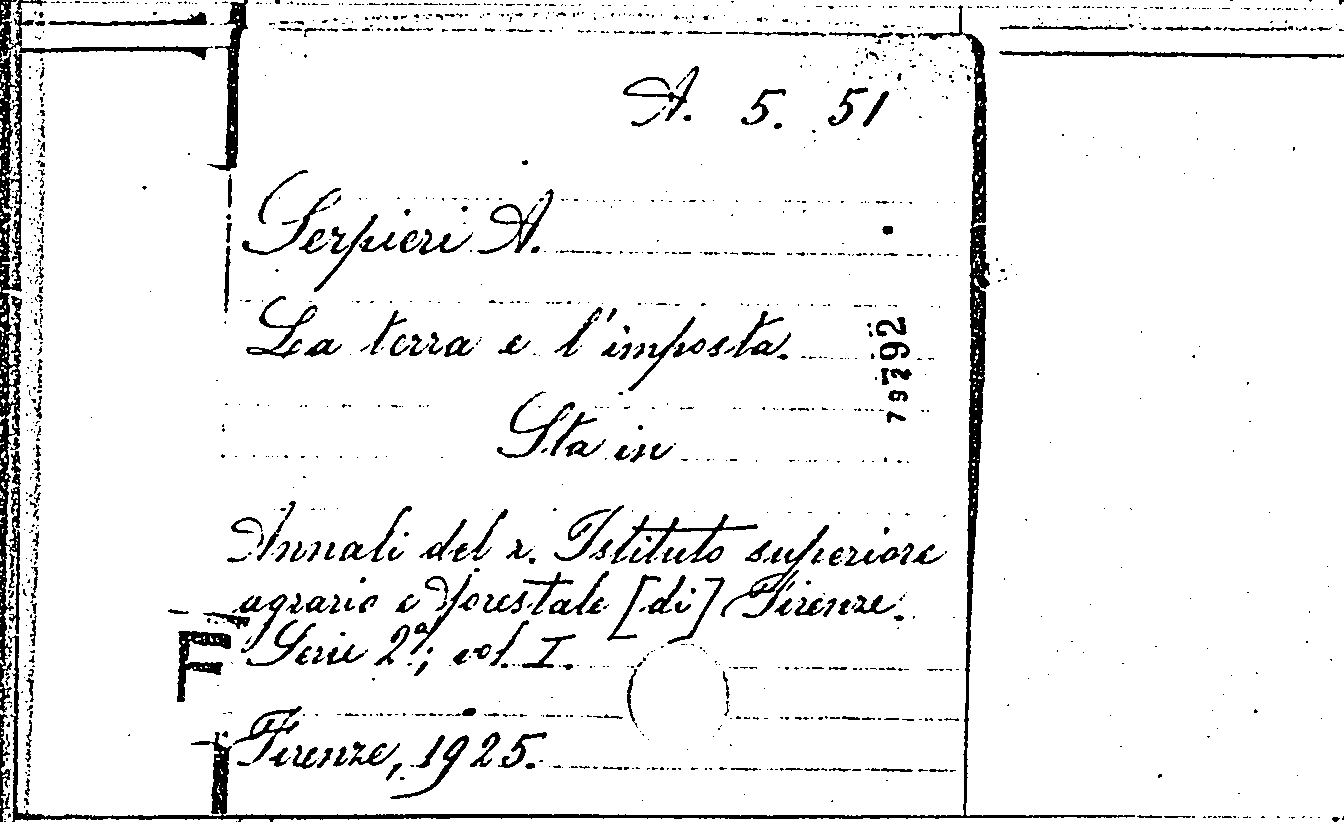 A. 5. 51
Serpieri A.
La terra e l'imposta.
79292
Sta in
Annali del r. Istituto superiore
agrario e forestale [di] Firenze.
Serie 2ª; vol. I.
Firenze, 1925.